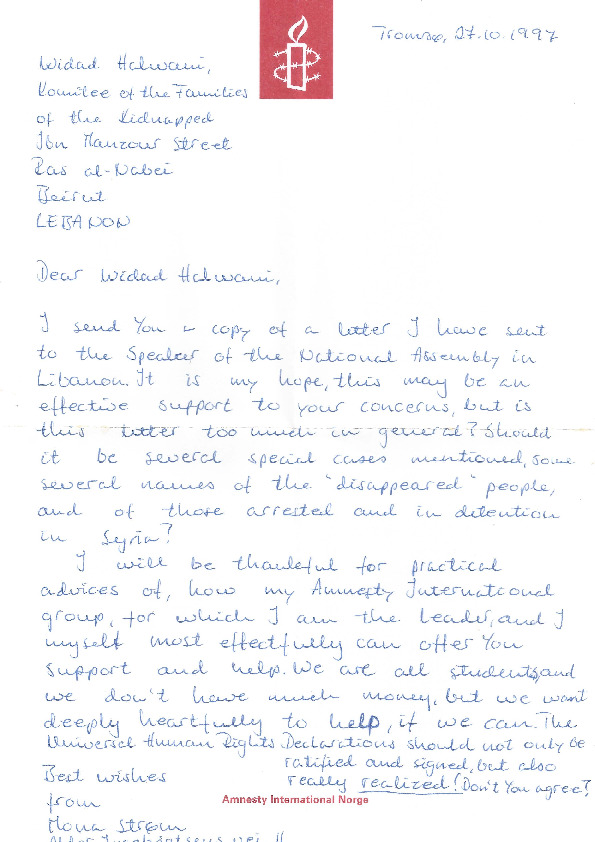 Tromsø, 27.10.1997
Widad Halwani,
Komitee of the Families
of the Kidnapped
Ibn Manzour Street
Ras al-Nabei
Beirut
LEBANON
Dear Widad Halwani,
I send You a copy of a letter I have sent
to the Speaker of the National Assembly in
Libanon. It is my hope, this may be an
effective support to your concerns, but is
this letter too much in general? Should
it be several special cases mentioned, some
several names of the "disappeared" people,
and of those arrested and in detention
in Syria?
I will be thankful for practical
advices of, how my Amnesty International
group, for which I am the leader, and I
myself most effectfully can offer You
support and help. We are all students, and
we don't have much money, but we want
deeply heartfully to help, if we can. The
Universal Human Rights Declarations should not only be
ratified and signed, but also
really realized! Don't You agree?
Best wishes
from
Mona Strøm
Amnesty International Norge